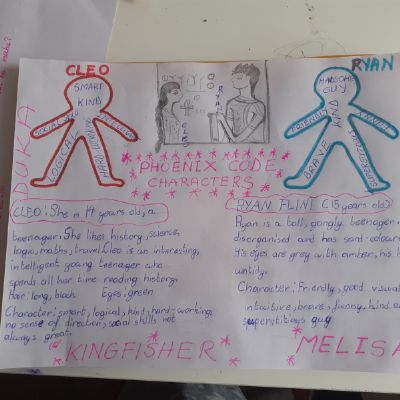 CLEO
RYAN
SMART
KIND
LOGICAL
HARDWORKING
HANDSOME
GUY
FRIENDLY
KIND
FUNNY
BRAVE
SUPERSTITIOUS
DUKA
RYAN
CLEO
PHOENIX CODE
CHARACTERS
CLEO: She is 14 years old, a
teenager. She likes history, science,
logic, maths, travel. Cleo is an interesting,
intelligent young teenager who
spends all her time reading history,
Hair: long, black Eyes: green
Character: smart, logical, kind, hard-working,
no sense of direction, social skills not
always great.
KINGFISHER
RYAN FLINT (15 years old)
Ryan is a tall, gangly teenager
disorganised and has sand-colour
His eyes are grey with amber, his h
untidy.
Character: Friendly, good visual
intuitive, brave, funny, kind a
superstitious guy
MELISA